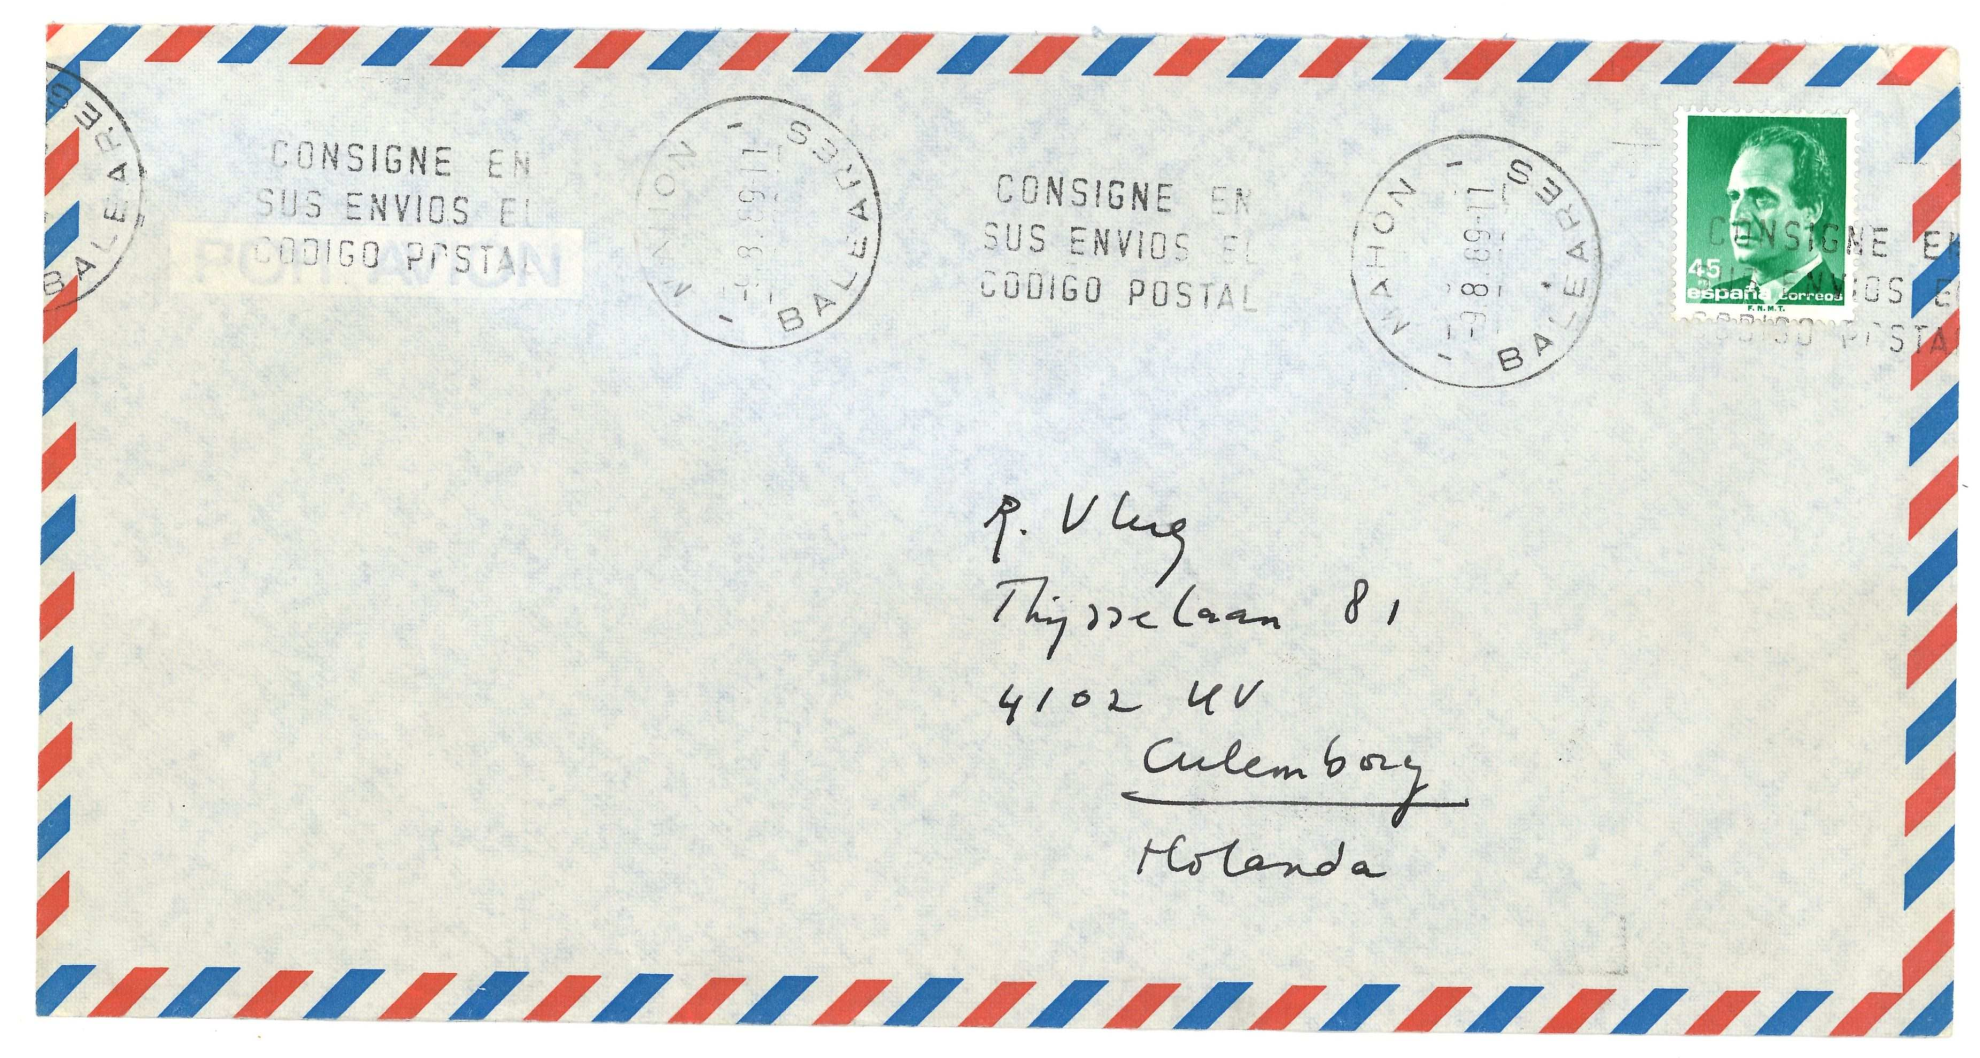 BALEARES
CONSIGNE EN
SUS ENVIOS EL
CODIGO POSTAL
POR AVION
MAHON
-9.8.89-11
BALEARES
CONSIGNE EN
SUS ENVIOS EL
CODIGO POSTAL
MAHON
-9.8.89-11
BALEARES
45
españa correos
F.N.M.T.
CONSIGNE EN
ENVIOS E
POSTA
R. Vlug
Thijsselaan 81
4102 UV
Culemborg
Holanda